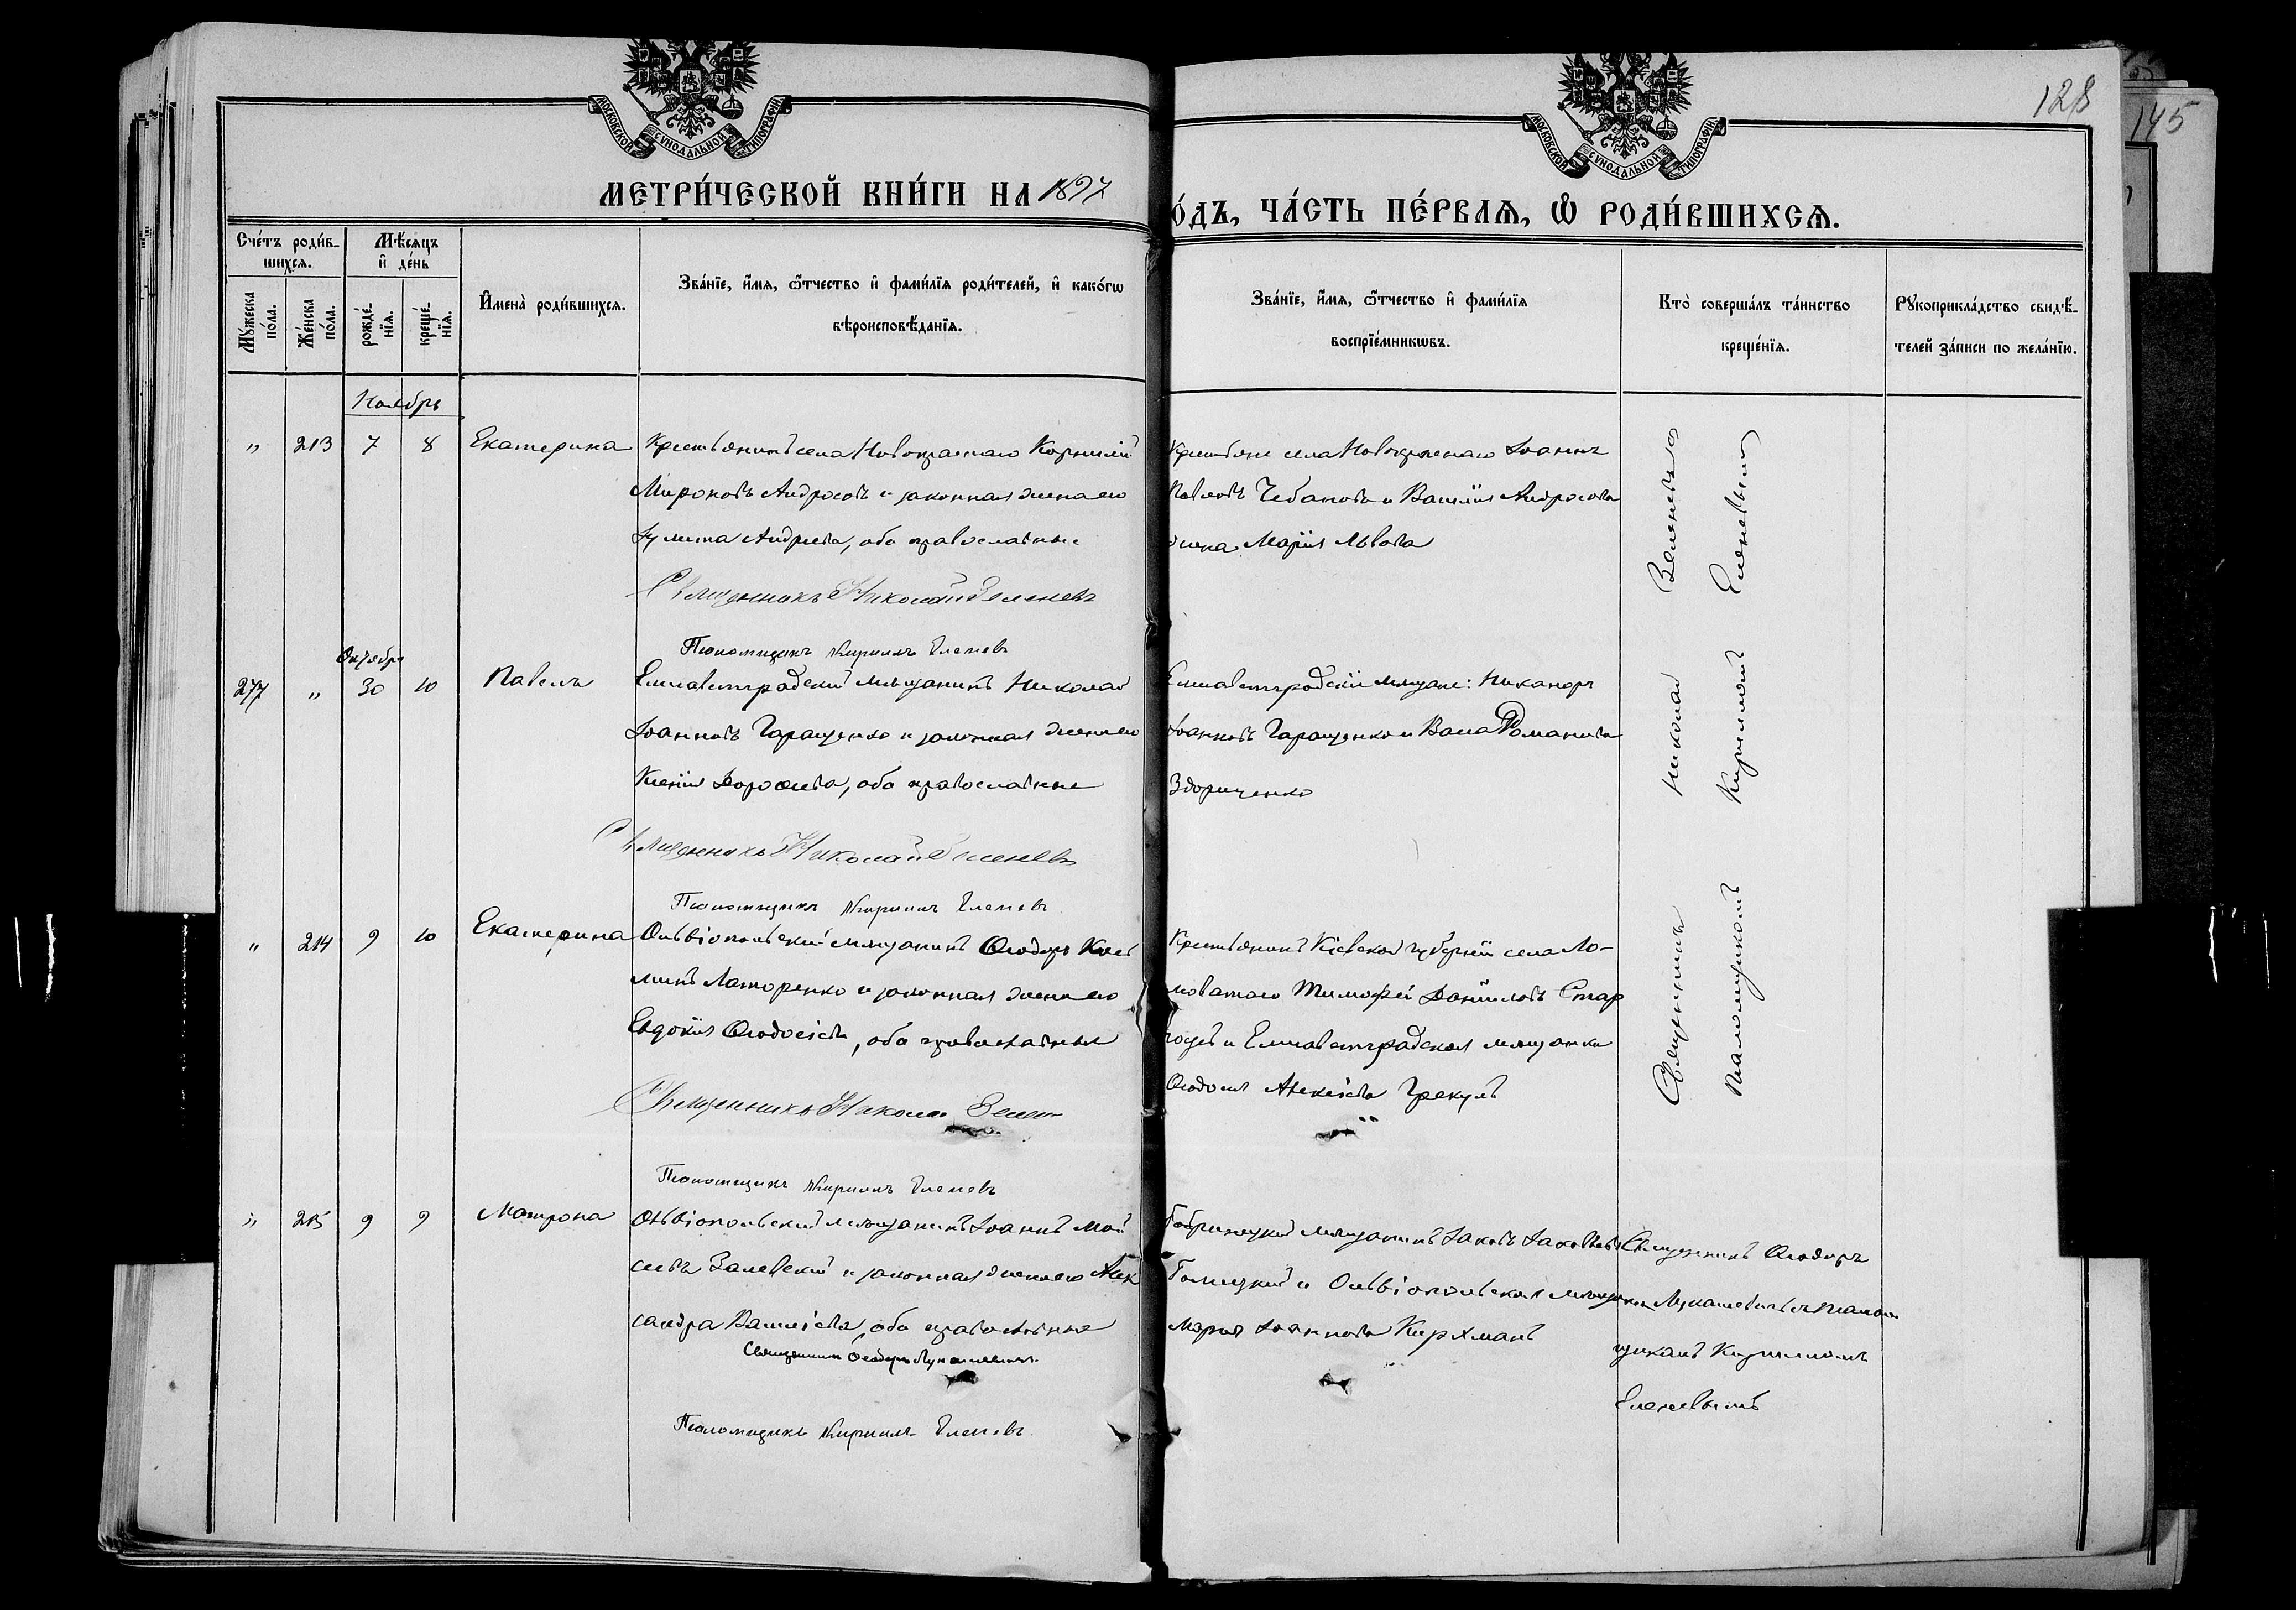 128
145
МОСКОВСКОЙ СѴНОДАЛЬНОЙ ТИПОГРАФІИ.
МОСКОВСКОЙ СѴНОДАЛЬНОЙ ТИПОГРАФІИ.
МЕТРИ́ЧЕСКОЙ КНИ́ГИ НА 1897
О́ДЪ, ЧА́СТЬ ПЕ́РВАѦ, Ѡ҆ РОДИ́ВШИХСѦ.
Сче́тъ роди́в-
шихсѧ.
Мꙋ́жеска
по́ла.
Же́нска
по́ла.
Мѣ́сѧцъ
и҆ де́нь
рожде́-
нїѧ.
креще́-
нїѧ.
И҆мена̀ роди́вшихсѧ.
Зва́нїе, и҆́мѧ, ѻ҆́тчество и҆ фами́лїѧ роди́телей, и҆ како́гѡ
вѣроисповѣ́данїѧ.
Зва́нїе, и҆́мѧ, ѻ҆́тчество и҆ фами́лїѧ
воспрїе́мникѡвъ.
Кто̀ соверша́лъ та́инство
креще́нїѧ.
Рꙋкоприкла́дство свидѣ́-
телей за́писи по жела́нїю.
Ноябрь
„ 213 7 8 Екатерина Крестьянинъ села Новокраснаго Корнилій
Мироновъ Андросовъ и законная жена его
Іулита Андреева, оба православные
Священникъ Николай Зеленевъ
Псаломщикъ Кириллъ Еленевъ
Крестьяне села Новокраснаго Іоаннъ
Павловъ Чебановъ и Василія Андросова
жена Марія Львова
Октября
277 „ 30 10 Павелъ Елисаветградскій мѣщанинъ Николай
Іоанновъ Гаращенко и законная жена его
Ксенія Дорофеева, оба православные
Священникъ Николай Зеленевъ
Псаломщикъ Кириллъ Еленевъ
Елисаветградскіе мѣщане: Никаноръ
Іоанновъ Гаращенко и Васса Романова
„ 214 9 10 Екатерина Ольвіопольскій мѣщанинъ Ѳеодоръ Кось
минъ Латоренко и законная жена его
Евдокія Ѳеодосіева, оба православные
Священникъ Николай Зелен
Псаломщикъ Кириллъ Еленевъ
Крестьянинъ Кіевской губерніи села Ло-
коватаго Тимофей Даніиловъ Стар
и Елисаветградская мѣщанка
Ѳеодосія Алексіева Грекулъ
Священникъ Николай Зеленевъ съ
псаломщикомъ Кирилломъ Еленевымъ
„ 215 9 9 Матрона Ольвіопольскій мѣщанинъ Іоаннъ Мой
сеевъ Залевскій и законная жена его Алек
сандра Василіева, оба православные
Священникъ Ѳеодоръ Лукашевичъ.
Псаломщикъ Кириллъ Еленевъ
Бобринецкій мѣщанинъ Іаковъ Іаковлевъ
Голицкій и Ольвіопольская мѣщанка
Марія Іоаннова Кирхманъ
Священникъ Ѳеодоръ
Лукашевичъ съ псалом
щикомъ Кирилломъ
Еленевымъ